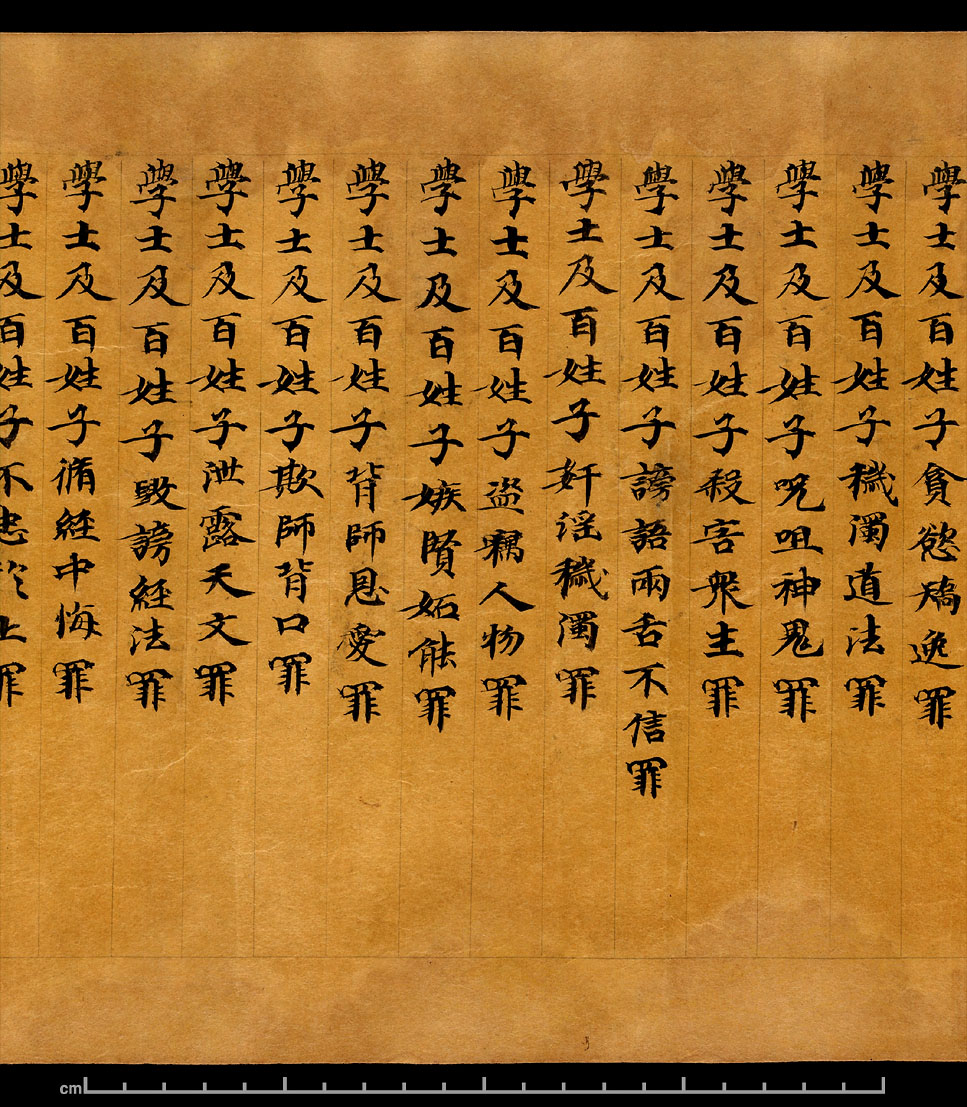 學士及百姓子貪慾矯逸罪
學士及百姓子穢濁道法罪
學士及百姓子呪咀神鬼罪
學士及百姓子殺害衆生罪
學士及百姓子謗語兩舌不信罪
學士及百姓子奸淫穢濁罪
學士及百姓子盜竊人物罪
學士及百姓子嫉賢妬能罪
學士及百姓子背師恩愛罪
學士及百姓子欺師背口罪
學士及百姓子泄露天文罪
學士及百姓子毀謗經法罪
學士及百姓子脩經中悔罪
學士及百姓子不忠於上罪
cm